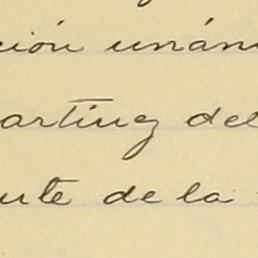 ción unáni
artinez del
nte de la